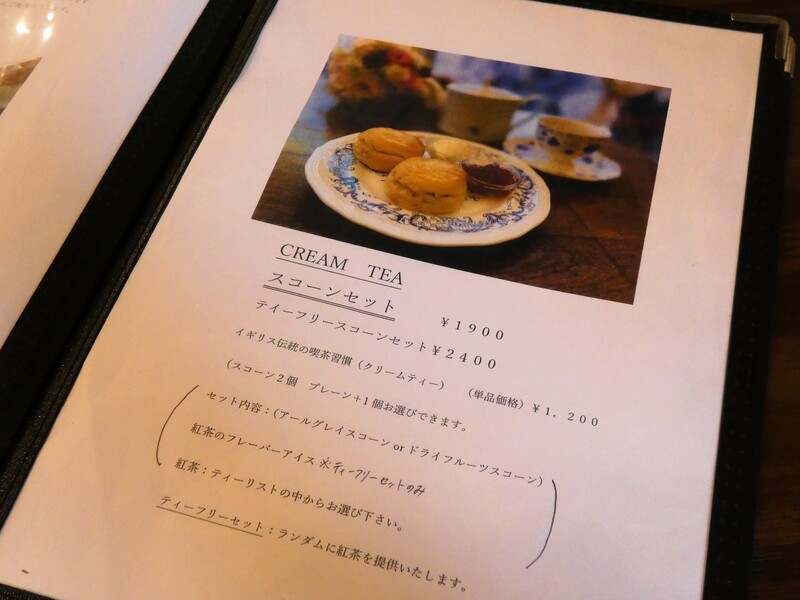 CREAM TEA
スコーンセット ￥1900
ティーフリースコーンセット￥2400
イギリス伝統の喫茶習慣（クリームティー） （単品価格）￥1，200
（スコーン2個 プレーン＋1個お選びできます。
セット内容：（アールグレイスコーン or ドライフルーツスコーン）
紅茶のフレーバーアイス ※ティーフリーセットのみ
紅茶：ティーリストの中からお選び下さい。
ティーフリーセット：ランダムに紅茶を提供いたします。